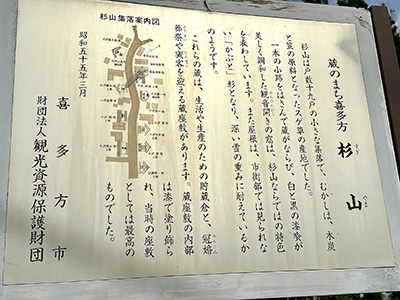 蔵のまち喜多方
杉山
すぎ やま
杉山は戸数十九戸の小さな集落で、むかしは、木炭
と笠の原料となったスゲ草の産地でした。
一本の小路をはさんで蔵がならび、白と黒の漆喰が
美しく調和した観音開きの窓は、杉山ならではの特色
を表わしています。また屋根は、市街部では見られな
い「かぶと」形となり、深い雪の重みに耐えているか
のようです。
これらの蔵は、生活や生産のための貯蔵倉と、冠婚
葬祭や賓客を迎える蔵座敷があります。蔵座敷の内部
は漆で塗り飾ら
れ、当時の座敷
としては最高の
ものでした。
杉山集落案内図
昭和五十五年三月
喜多方市
財団法人 観光資源保護財団